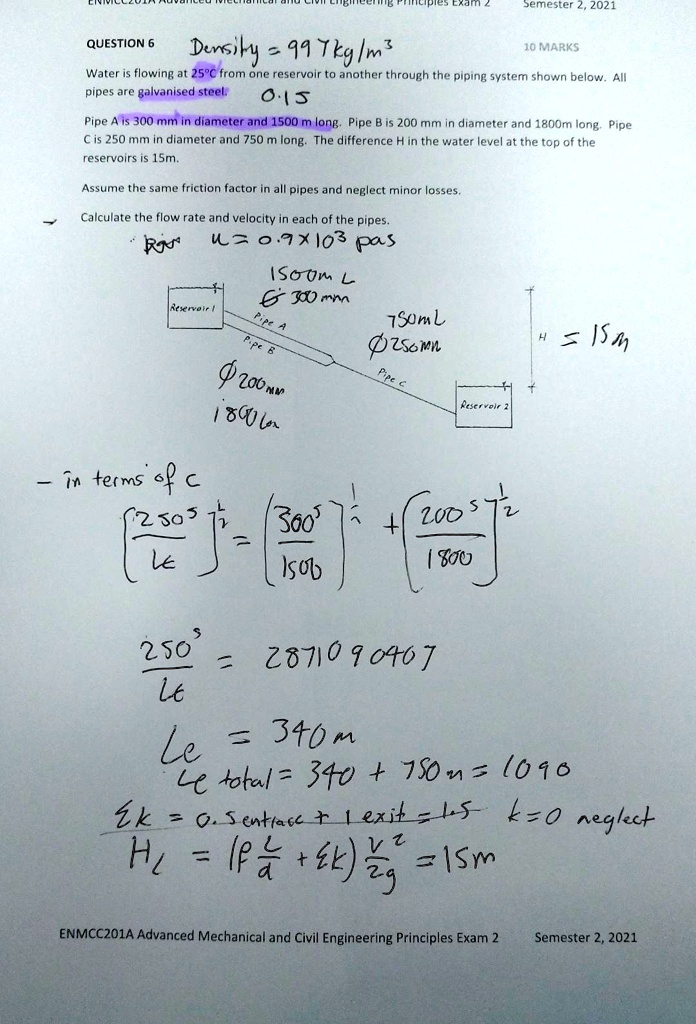 ENMCC201A Advanced Mechanical and Civil Engineering Principles Exam 2 Semester 2, 2021
QUESTION 6 Density = 997kg/m³ 10 MARKS
Water is flowing at 25°C from one reservoir to another through the piping system shown below. All
pipes are galvanised steel. 0.15
Pipe A is 300 mm in diameter and 1500 m long. Pipe B is 200 mm in diameter and 1800m long. Pipe
C is 250 mm in diameter and 750 m long. The difference H in the water level at the top of the
reservoirs is 15m.
Assume the same friction factor in all pipes and neglect minor losses.
Calculate the flow rate and velocity in each of the pipes.
u = 0.9 x 10³ pas
1500m L
300mm
Reservoir 1
Pipe A
750m L
Pipe B
Ø250mm
H = 15m
Ø200mm
Pipe C
1800 Lon
Reservoir 2
- in terms of C
(250⁵/Le)^1/2 = (300⁵/1500)^1/2 + (200⁵/1800)^1/2
250⁵/Le = 2871090407
Le = 340m
Le total = 340 + 750m = 1090
Σk = 0.5 entrace + 1 exit = 1.5 k=0 neglect
HL = (f L/d + Σk) v²/2g = 15m
ENMCC201A Advanced Mechanical and Civil Engineering Principles Exam 2 Semester 2, 2021